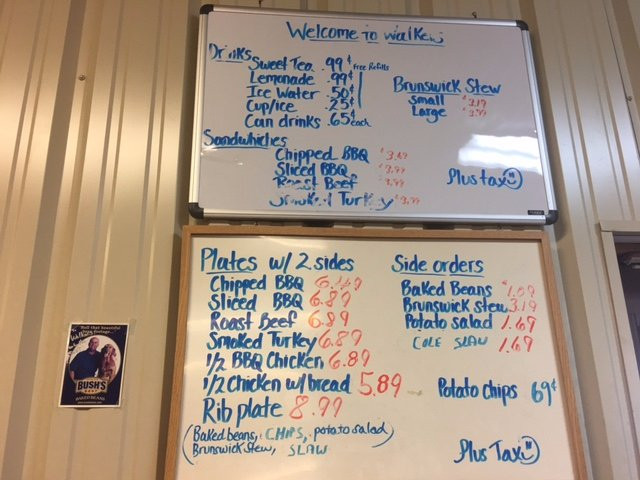 Welcome to Walkers
Drinks
Sweet Tea .99¢ Free Refills
Lemonade .99¢
Ice Water .50¢
Cup/ice .25¢
Can drinks .65¢ each
Brunswick Stew
Small $3.19
Large
Sandwhiches
Chipped BBQ
Sliced BBQ
Roast Beef
Smoked Turkey $3.99
Plus tax
Plates w/ 2 sides
Chipped BBQ
Sliced BBQ 6.89
Roast Beef 6.89
Smoked Turkey 6.89
1/2 BBQ Chicken 6.89
1/2 Chicken w/ bread 5.89
Rib plate 8.99
(Baked beans, CHIPS, potato salad)
Brunswick Stew, SLAW
Side orders
Baked Beans
Brunswick Stew 3.19
Potato salad 1.69
COLE SLAW 1.69
Potato chips 69¢
Plus Tax
BUSH'S
BEST